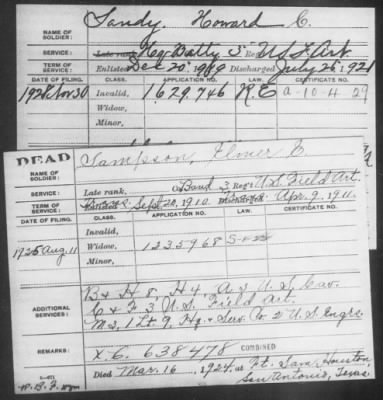 Sandy, Howard C.
NAME OF SOLDIER:
SERVICE: Late rank, Hq. Batty 3" Reg't U S F. Art.
TERM OF SERVICE: Enlisted Dec 20", 1919 Discharged July 26, 1921
DATE OF FILING. APPLICATION NO. LAW. CERTIFICATE NO.
1928 Nov 30 Invalid, 1.629.746 R.E A-10-4 29
Widow,
Minor,
DEAD
NAME OF SOLDIER: Sampson, Elmer E.
SERVICE: Late rank, Band 3 Reg't U.S. Field Art.
TERM OF SERVICE: Enlisted Sept 20, 1910. Discharged Apr. 9, 1911.
DATE OF FILING. CLASS. APPLICATION NO. LAW. CERTIFICATE NO.
Invalid,
1925 Aug. 11 Widow, 1235968
Minor,
ADDITIONAL SERVICES: B & H 8, H 4, A 3 U.S. Cav.
C & F 3 U.S. Field Art.
1 Lt 9, Hq. & Serv. Co 2 U.S. Engrs.
REMARKS: X.C. 638478 COMBINED
Died Mar. 16, 1924, at Ft. Sam Houston,
San Antonio, Texas.